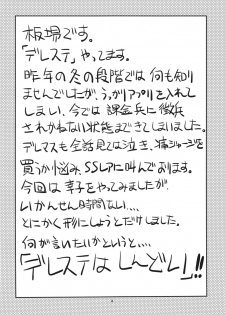 板場です。
「デレステ」やってます。
昨年の冬の段階では何も知り
ませんでしたが、うっかりアプリを入れて
しまい、今では課金兵に徴兵
されかねない状態まできてしまいました。
デレマスも全話見ては泣き、痛ジャージを
買うか悩み、SSレアに叫んでおります。
今回は幸子をやってみましたが、
いかんせん時間ない・・・・
とにかく形にしようとだけしました。
何が言いたいかというと・・・・
「デレステはしんどい」!!
4